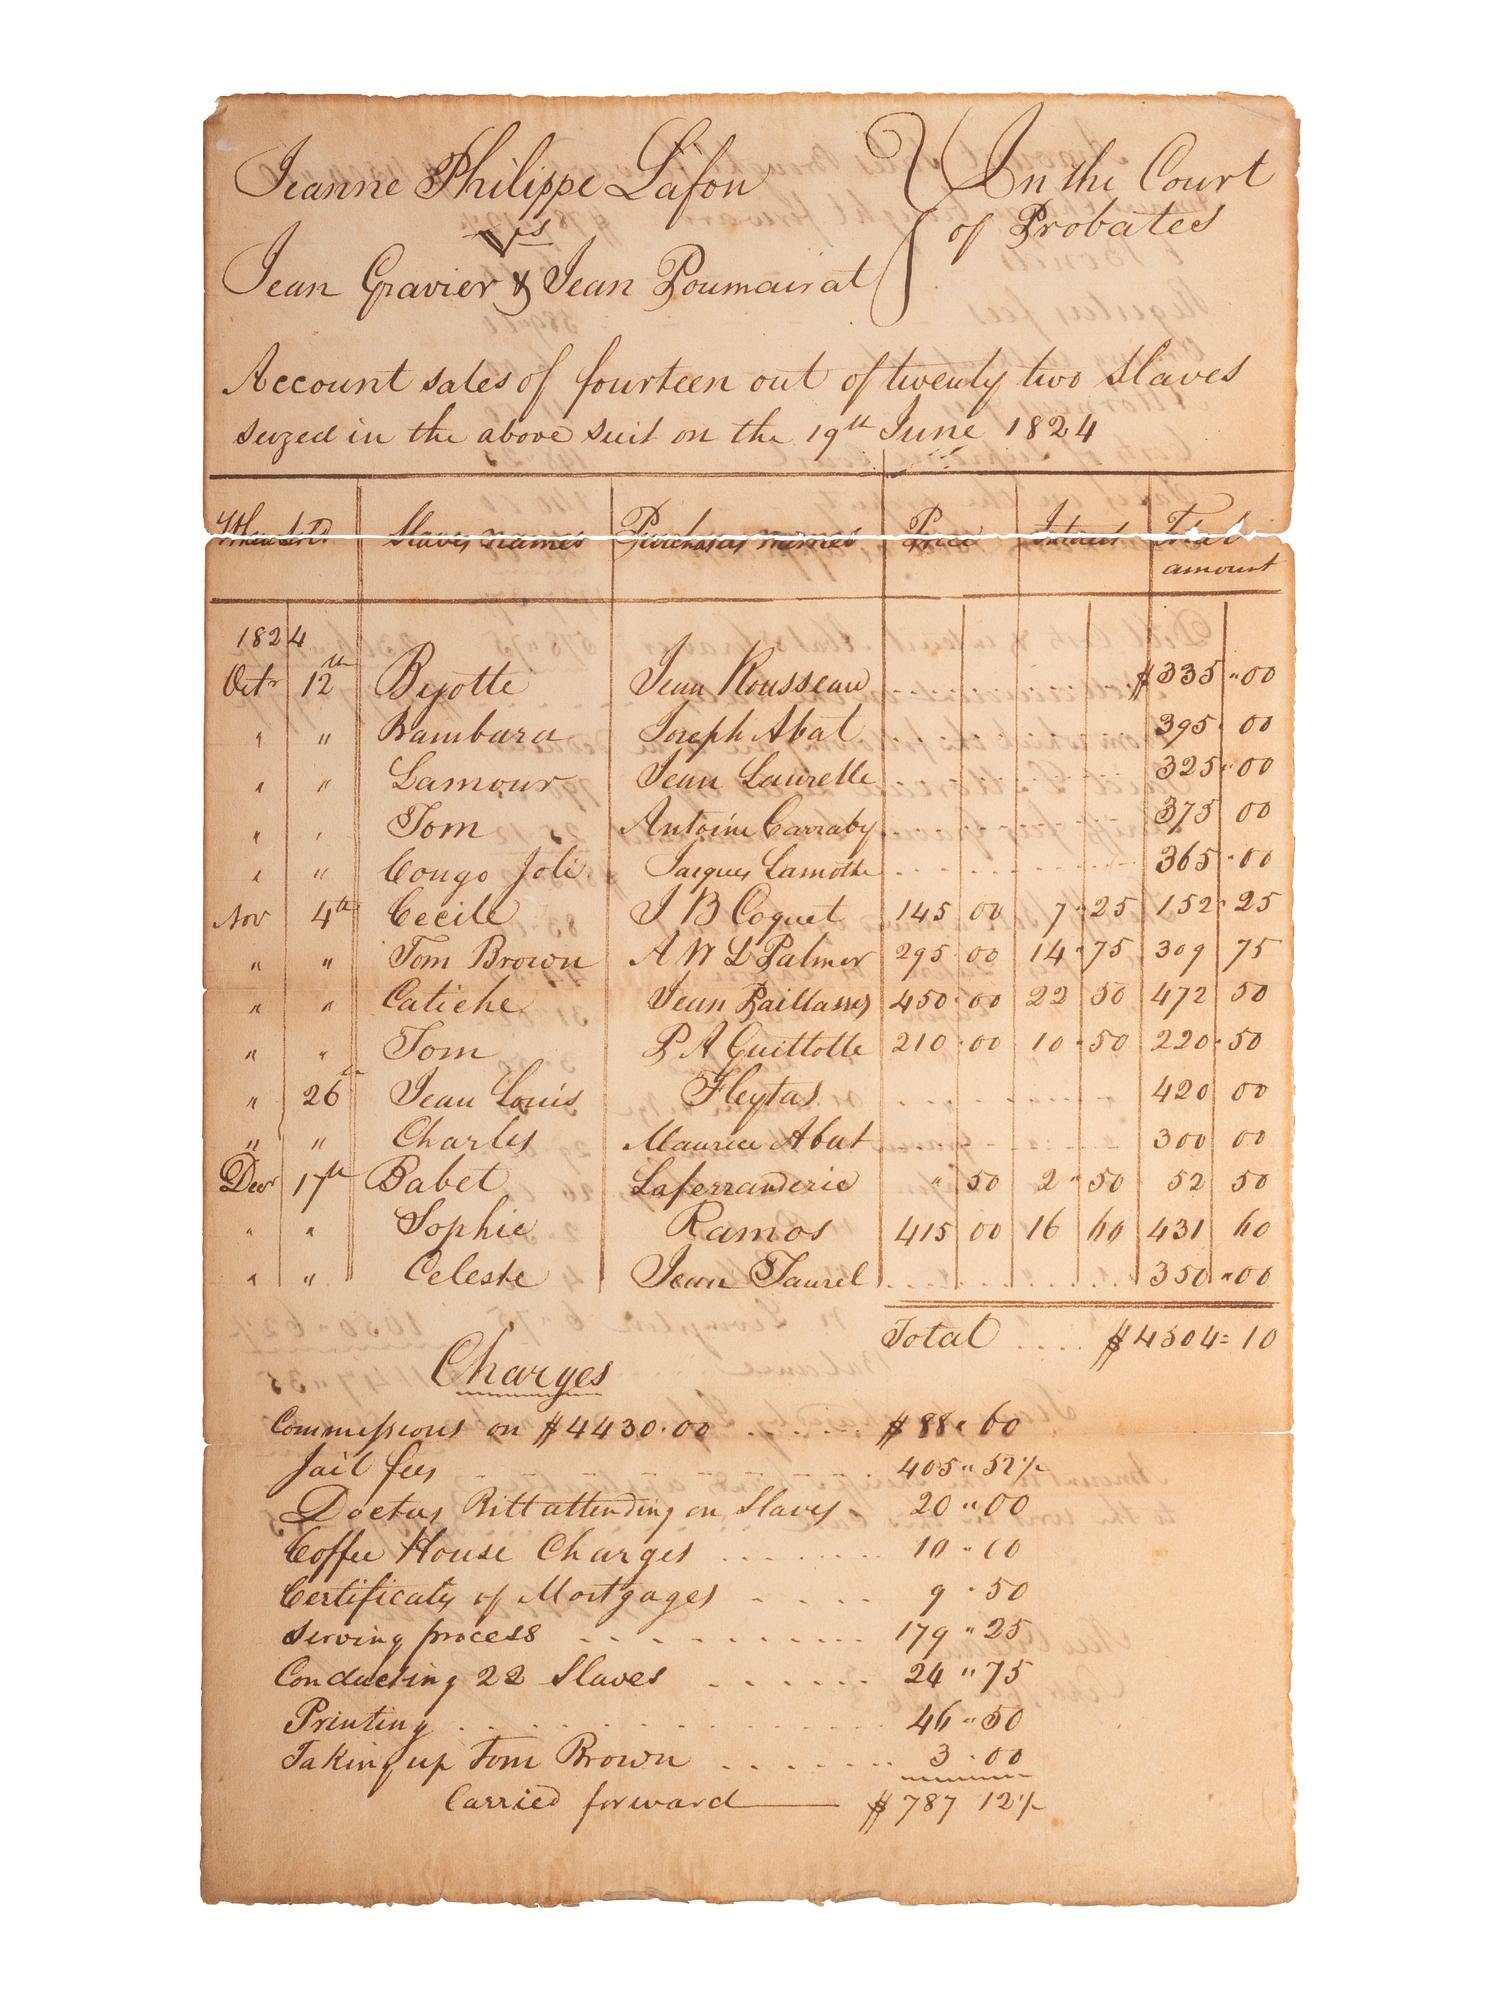 Jeanne Philippe Lafon
vs
Jean Gravier & Jean Poumairat
In the Court
of Probates
Account sales of fourteen out of twenty two Slaves
seized in the above suit on the 19th June 1824
When sold Slaves names Purchasers names Price Interest Total
amount
1824
Octr 12th Byotte Jean Rousseau $335 " 00
" " Bambara Joseph Abat 395 00
" " Lamour Jean Laurette 325 " 00
" " Tom Antoine Carraby 375 00
" " Congo Joli Jacques Lamothe 365 " 00
Nov 4th Cecile J B Coquet 145 00 7 " 25 152 " 25
" " Tom Brown A W L Palmer 295 00 14 " 75 309 75
" " Catiche Jean Paillasses 450 " 00 22 50 472 50
" " Tom P A Guillotte 210 " 00 10 " 50 220 " 50
" 26 Jean Louis Fleytas 420 00
" " Charles Maurice Abat 300 00
Decr 17th Babet Laferranderie " 50 2 " 50 52 50
" " Sophie Ramos 415 00 16 60 431 60
" " Celeste Jean Taurel 350 " 00
Total $4504 = 10
Charges
Commissions on $4430.00 $88 " 60
Jail fees 405 " 52½
Doctus Ritt attending on Slaves 20 " 00
Coffee House Charges 10 " 00
Certificats of Mortgages 9 " 50
Serving process 179 " 25
Conducting 22 Slaves 24 " 75
Printing 46 " 50
Taking up Tom Brown 3 " 00
Carried forward $787 12½